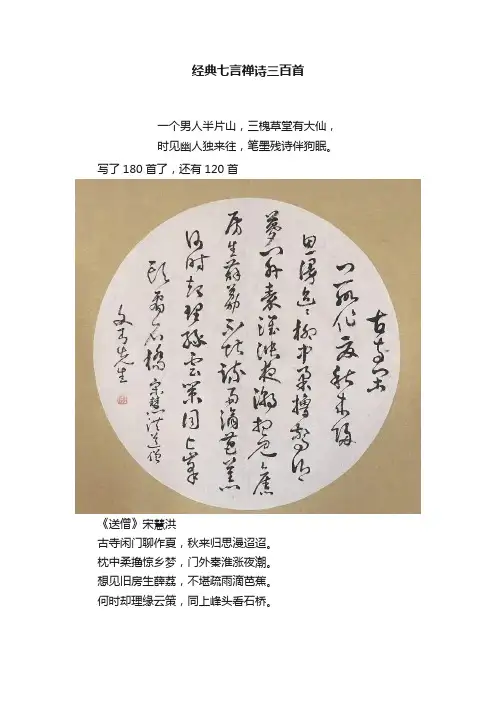 经典七言禅诗三百首
一个男人半片山，三槐草堂有大仙，
时见幽人独来往，笔墨残诗伴狗眠。
写了180首了，还有120首
古寺闲
门聊作夏秋来归
思漫迢迢枕中柔橹惊乡
夢门外秦淮涨夜潮想见旧
房生薜荔不堪疏雨滴芭蕉
何时却理缘云策同上峯
头看石橋 宋慧洪送僧
先生
《送僧》宋慧洪
古寺闲门聊作夏，秋来归思漫迢迢。
枕中柔撸惊乡梦，门外秦淮涨夜潮。
想见旧房生薜荔，不堪疏雨滴芭蕉。
何时却理缘云策，同上峰头看石桥。